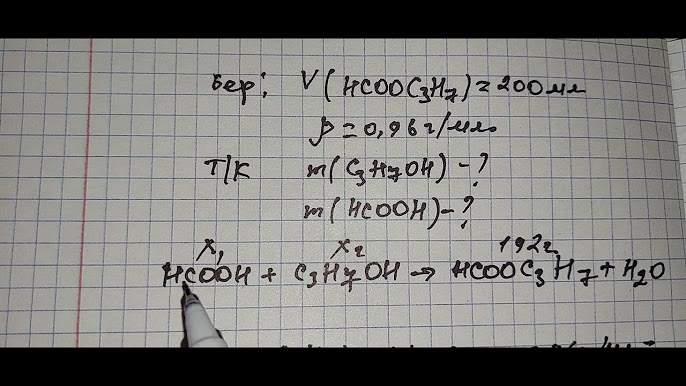 Бер: V(HCOOC₃H₇)=200мл
ρ=0,96г/мл.
Т/К m(C₃H₇OH)-?
m(HCOOH)-?
X₁ X₂ 192г
HCOOH + C₃H₇OH → HCOOC₃H₇ + H₂O